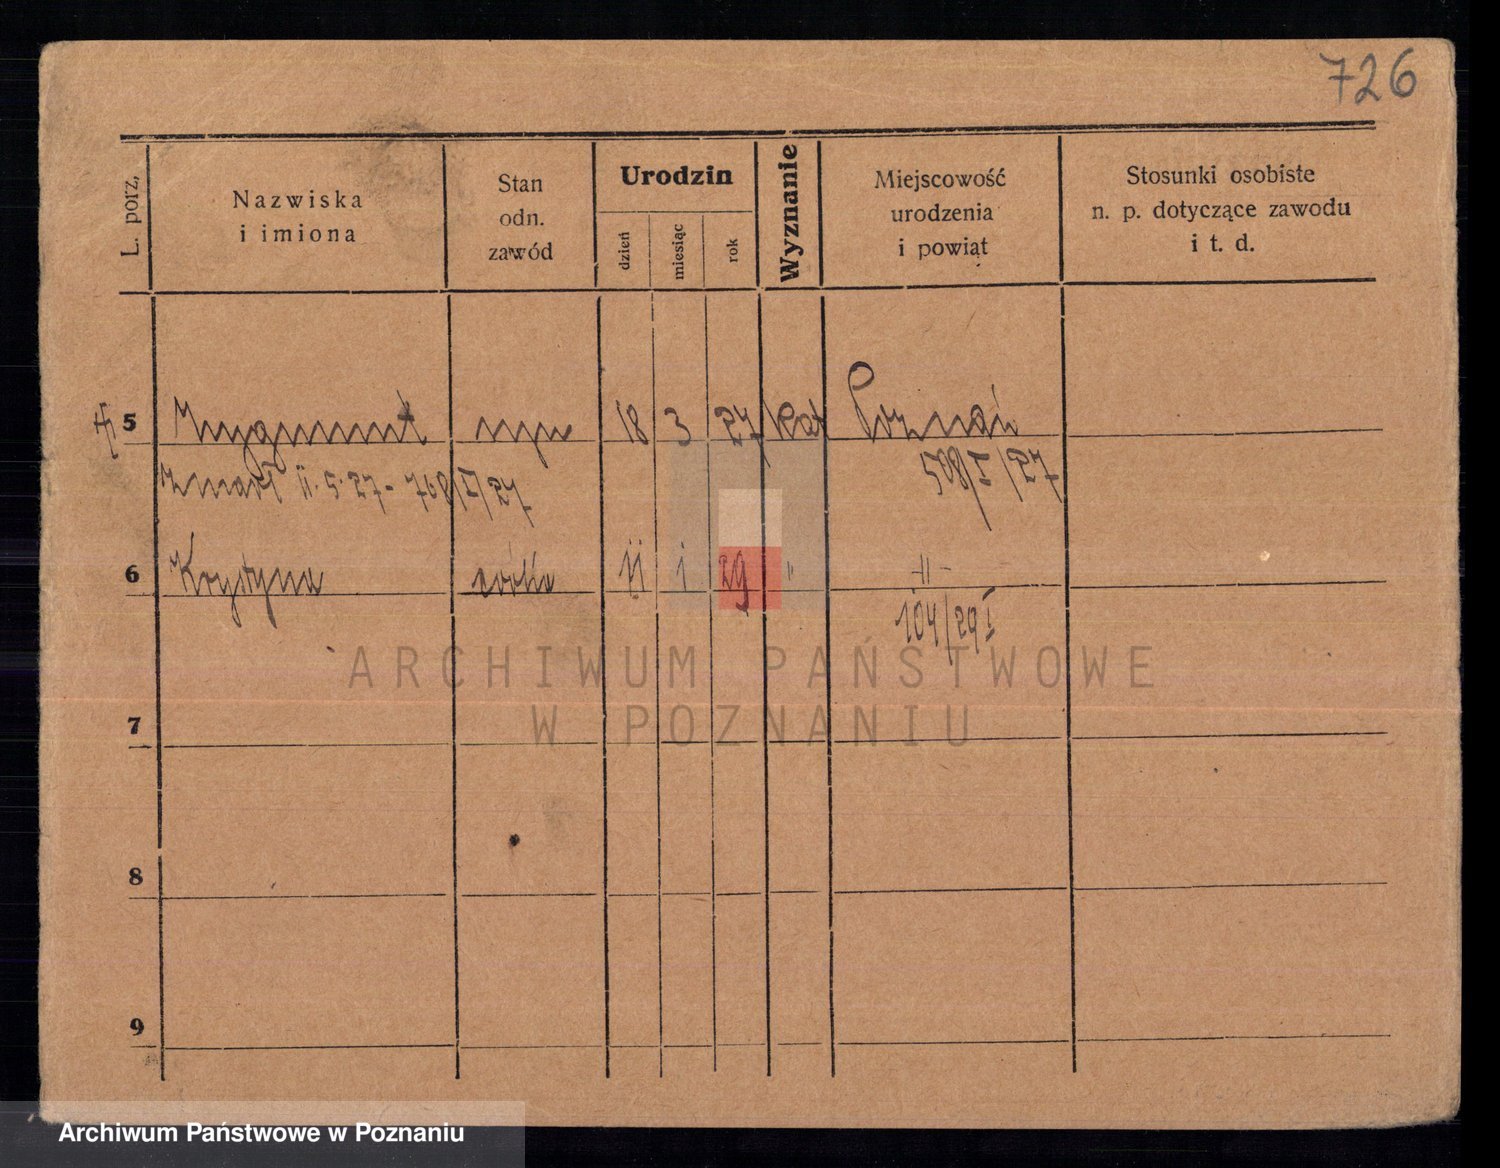 726
L. porz,
Nazwiska
i imiona
Stan
odn.
zawód
Urodzin
dzień
miesiąc
rok
Wyznanie
Miejscowość
urodzenia
i powiąt
Stosunki osobiste
n. p. dotyczące zawodu
i t. d.
5 Zygmunt syn 18 3 27 kat Poznań
zmarł 11.5.27 - 708/I/27 508/I/27
6 Krystyna córka 11 1 29 " -II-
104/29 I
ARCHIWUM PAŃSTWOWE
W POZNANIU
7
8
9
Archiwum Państwowe w Poznaniu